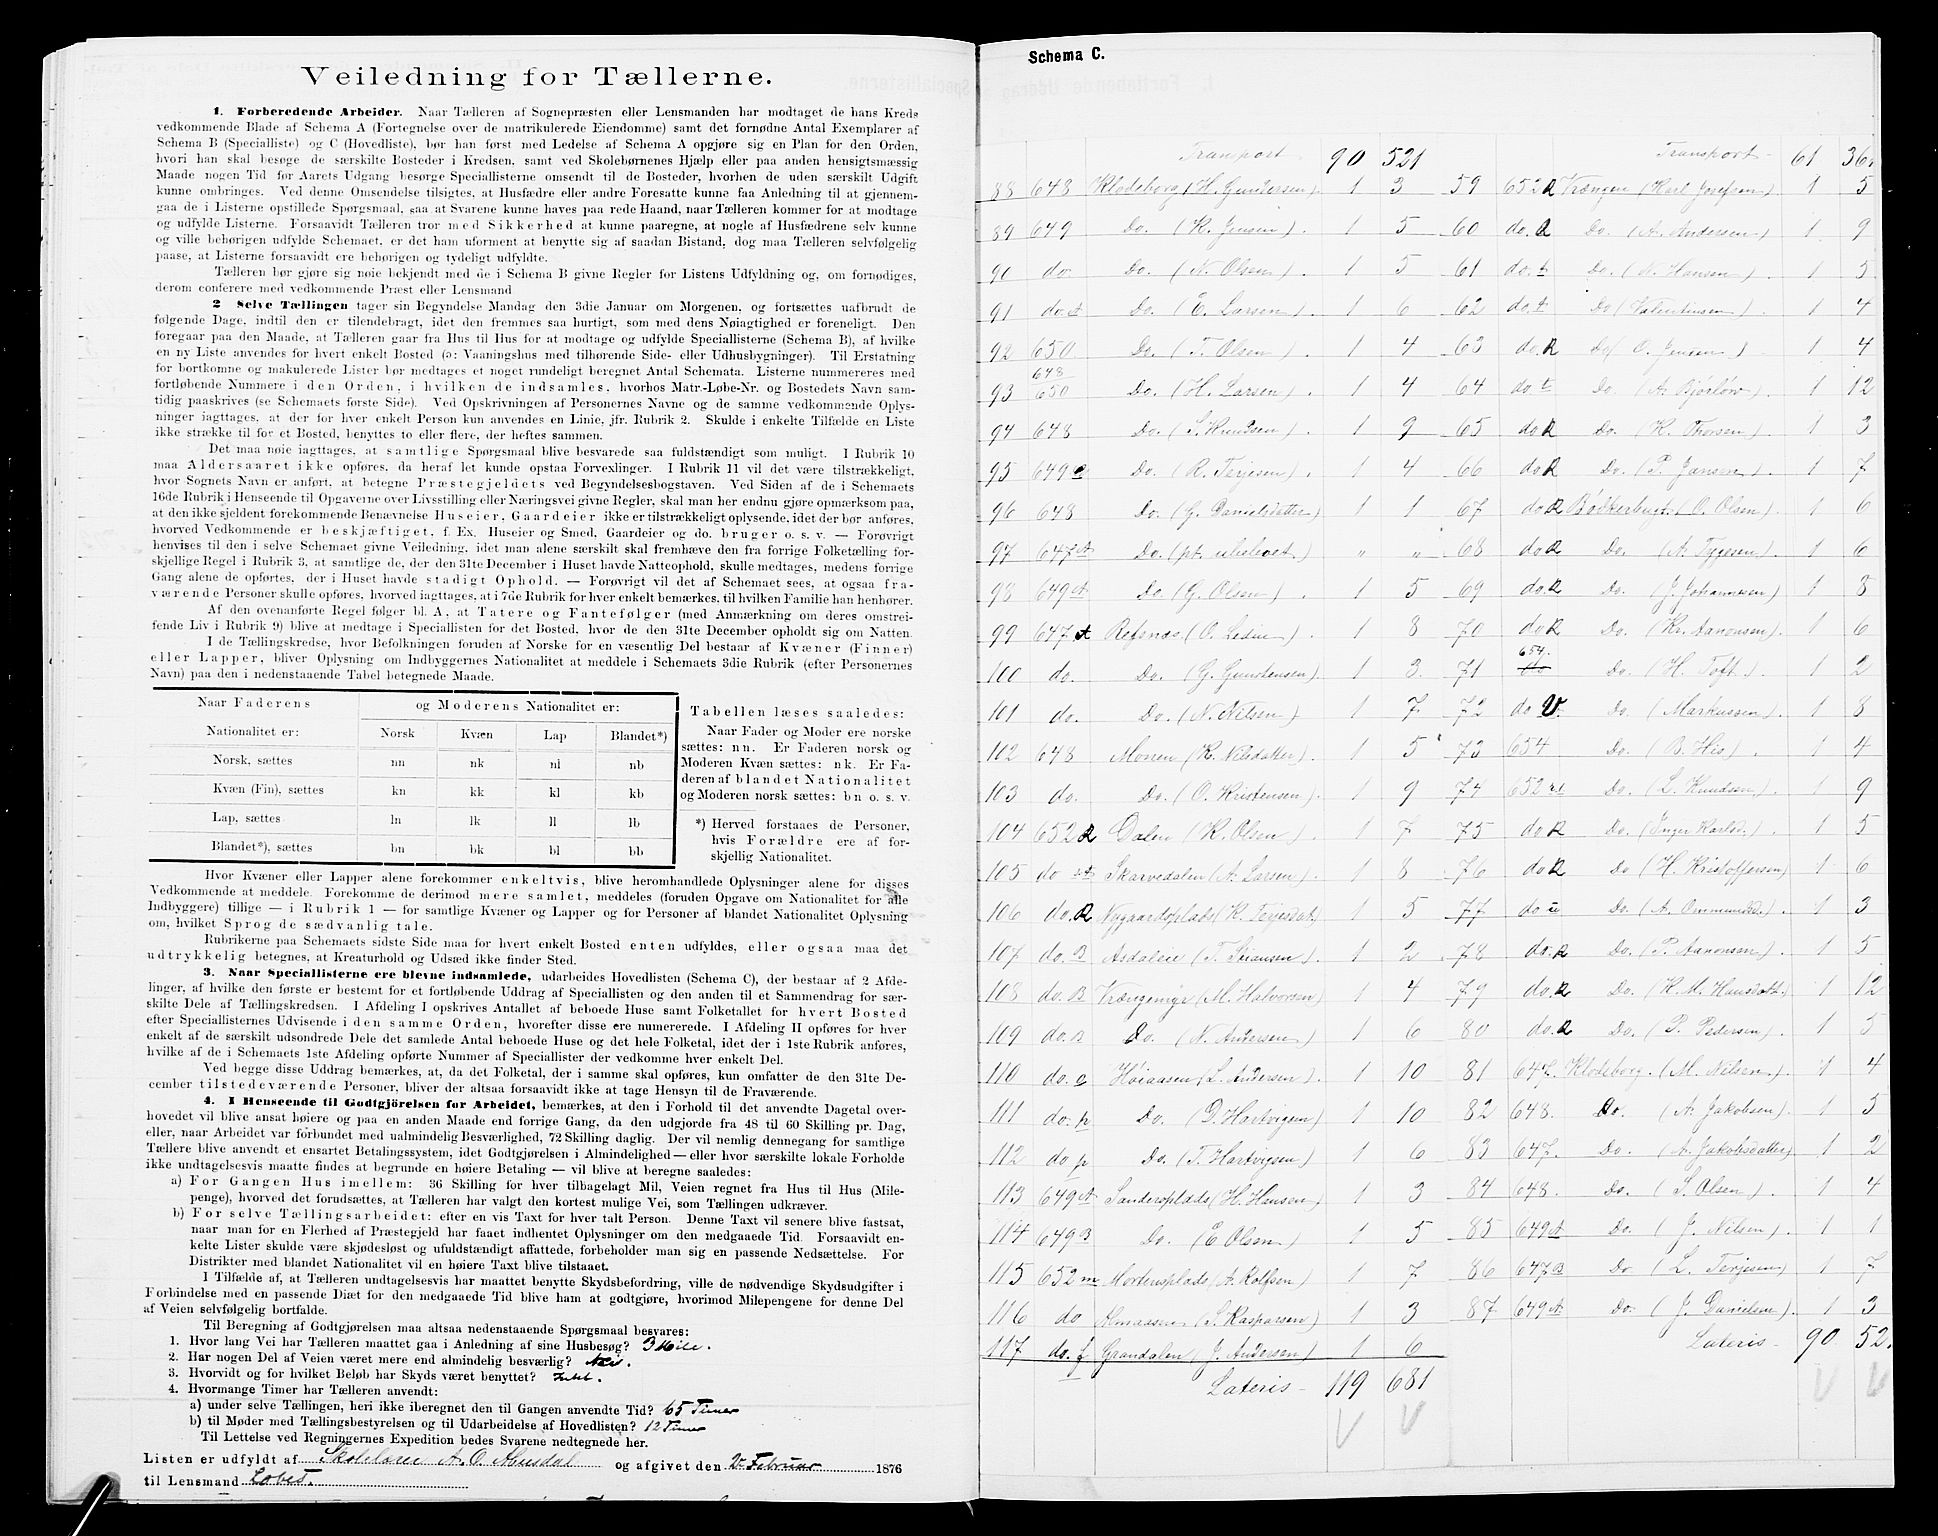 Veiledning for Tællerne.
1. Forberedende Arbeider. Naar Tælleren af Sognepræsten eller Lensmanden har modtaget de hans Kreds
vedkommende Blade af Schema A (Fortegnelse over de matrikulerede Eiendomme) samt det fornødne Antal Exemplarer af
Schema B (Specialliste) og C (Hovedliste), bør han først med Ledelse af Schema A opgjøre sig en Plan for den Orden,
hvori han skal besøge de særskilte Bosteder i Kredsen, samt ved Skolebørnenes Hjælp eller paa anden hensigtsmæssig
Maade nogen Tid før Aarets Udgang besørge Speciallisterne omsendt til de Bosteder, hvorhen de uden særskilt Udgift
kunne ombringes. Ved denne Omsendelse tilsigtes, at Husfædre eller andre Foresatte kunne faa Anledning til at gjennem-
gaa de i Listerne opstillede Spørgsmaal, saa at Svarene kunne haves paa rede Haand, naar Tælleren kommer for at modtage
og udfylde Listerne. Forsaavidt Tælleren tror med Sikkerhed at kunne paaregne, at nogle af Husfædrene selv kunne
og ville behørigen udfylde Schemaet, er det ham uforment at benytte sig af saadan Bistand, dog maa Tælleren selvfølgelig
paase, at Listerne forsaavidt ere behørigen og tydeligt udfyldte.
Tælleren bør gjøre sig nøie bekjendt med de i Schema B givne Regler for Listens Udfyldning og, om fornødiges,
derom conferere med vedkommende Præst eller Lensmand
2 Selve Tællingen tager sin Begyndelse Mandag den 3die Januar om Morgenen, og fortsættes uafbrudt de
følgende Dage, indtil den er tilendebragt, idet den fremmes saa hurtigt, som med dens Nøiagtighed er foreneligt. Den
foregaar paa den Maade, at Tælleren gaar fra Hus til Hus for at modtage og udfylde Speciallisterne (Schema B), af hvilke
en ny Liste anvendes for hvert enkelt Bosted (ɔ: Vaaningshus med tilhørende Side- eller Udhusbygninger). Til Erstatning
for bortkomne og makulerede Lister bør medtages et noget rundeligt beregnet Antal Schemata. Listerne nummereres med
fortløbende Nummere i den Orden, i hvilken de indsamles, hvorhos Matr.-Løbe-Nr. og Bostedets Navn sam-
tidig paaskrives (se Schemaets første Side). Ved Opskrivningen af Personernes Navne og de samme vedkommende Oplys-
ninger iagttages, at der for hver enkelt Person kun anvendes en Linie, jfr. Rubrik 2. Skulde i enkelte Tilfælde en Liste
ikke strække til for et Bosted, benyttes to eller flere, der heftes sammen.
Det maa nøie iagttages, at samtlige Spørgsmaal blive besvarede saa fuldstændigt som muligt. I Rubrik 10
maa Aldersaaret ikke opføres, da heraf let kunde opstaa Forvexlinger. I Rubrik 11 vil det være tilstrækkeligt,
hvor Sognets Navn er anført, at betegne Præstegjeldets ved Begyndelsesbogstaven. Ved Siden af de i Schemaets
16de Rubrik i Henseende til Opgaverne over Livsstilling eller Næringsvei givne Regler, skal man her endnu gjøre opmærksom paa,
at den ikke sjeldent forekommende Benævnelse Huseier, Gaardeier ikke er tilstrækkeligt oplysende, idet der bør anføres,
hvorved Vedkommende er beskjæftiget, f. Ex. Huseier og Smed, Gaardeier og do. bruger o. s. v. — Forøvrigt
henvises til den i selve Schemaet givne Veiledning, idet man alene særskilt skal fremhæve den fra forrige Folketælling for-
skjellige Regel i Rubrik 3, at samtlige de, der den 31te December i Huset havde Natteophold, skulle medtages, medens forrige
Gang alene de opførtes, der i Huset havde stadigt Ophold. — Forøvrigt vil det af Schemaet sees, at ogsaa fra-
værende Personer skulle opføres, hvorved iagttages, at i 7de Rubrik for hver enkelt bemærkes, til hvilken Familie han henhører.
Af den ovenanførte Regel følger bl. A. at Tatere og Fantefølger (med Anmærkning om deres omstrei-
fende Liv i Rubrik 9) blive at medtage i Speciallisten for det Bosted, hvor de den 31te December opholdt sig om Natten.
I de Tællingskredse, hvor Befolkningen foruden af Norske for en væsentlig Del bestaar af Kvæner (Finner)
eller Lapper, bliver Oplysning om Indbyggernes Nationalitet at meddele i Schemaets 3die Rubrik (efter Personernes
Navn) paa den i nedenstaaende Tabel betegnede Maade.
Naar Faderens og Moderens Nationalitet er:
Nationalitet er: Norsk Kvæn Lap Blandet*)
Norsk, sættes nn nk nl nb
Kvæn (Fin), sættes kn kk kl kb
Lap, sættes ln lk ll lb
Blandet*), sættes bn bk bl bb
Tabellen læses saaledes:
Naar Fader og Moder ere norske
sættes: nn. Er Faderen norsk og
Moderen Kvæn sættes: nk. Er Fa-
deren af blandet Nationalitet
og Moderen norsk sættes: bn o. s. v.
*) Herved forstaaes de Personer,
hvis Forældre ere af for-
skjellig Nationalitet.
Hvor Kvæner eller Lapper alene forekommer enkeltvis, blive heromhandlede Oplysninger alene for disses
Vedkommende at meddele. Forekomme de derimod mere samlet, meddeles (foruden Opgave om Nationalitet for alle
Indbyggere) tillige — i Rubrik 1 — for samtlige Kvæner og Lapper og for Personer af blandet Nationalitet Oplysning
om, hvilket Sprog de sædvanlig tale.
Rubrikerne paa Schemaets sidste Side maa for hvert enkelt Bosted enten udfyldes, eller ogsaa maa det
udtrykkelig betegnes, at Kreaturhold og Udsæd ikke finder Sted.
3. Naar Speciallisterne ere blevne indsamlede, udarbeides Hovedlisten (Schema C), der bestaar af 2 Afde-
linger, af hvilke den første er bestemt for et fortløbende Uddrag af Speciallisten og den anden til et Sammendrag for sær-
skilte Dele af Tællingskredsen. I Afdeling I opskrives Antallet af beboede Huse samt Folketallet for hvert Bosted
efter Speciallisternes Udvisende i den samme Orden, hvorefter disse ere numererede. I Afdeling II opføres for hver
enkelt af de særskilt udsondrede Dele det samlede Antal beboede Huse og det hele Folketal, idet der i 1ste Rubrik anføres,
hvilke af de i Schemaets 1ste Afdeling opførte Nummer af Speciallister der vedkomme hver enkelt Del.
Ved begge disse Uddrag bemærkes, at, da det Folketal, der i samme skal opføres, kun omfatter de den 31te De-
cember tilstedeværende Personer, bliver der altsaa forsaavidt ikke at tage Hensyn til de Fraværende.
4. I Henseende til Godtgjörelsen for Arbeidet, bemærkes, at den i Forhold til det anvendte Dagetal over-
hovedet vil blive ansat høiere og paa en anden Maade end forrige Gang, da den udgjorde fra 48 til 60 Skilling pr. Dag,
eller, naar Arbeidet var forbundet med ualmindelig Besværlighed, 72 Skilling daglig. Der vil nemlig dennegang for samtlige
Tællere blive anvendt et ensartet Betalingssystem, idet Godtgjörelsen i Almindelighed — eller hvor særskilte lokale Forholde
ikke undtagelsesvis maatte findes at begrunde en høiere Betaling — vil blive at beregne saaledes:
a) For Gangen Hus imellem: 36 Skilling for hver tilbagelagt Mil, Veien regnet fra Hus til Hus (Mile-
penge), hvorved det forudsættes, at Tælleren har valgt den kortest mulige Vei, som Tællingen udkræver.
b) For selve Tællingsarbeidet: efter en vis Taxt for hver talt Person. Denne Taxt vil senere blive fastsat,
naar man for en Flerhed af Præstegjeld har faaet indhentet Oplysninger om den medgaaede Tid. Forsaavidt en-
kelte Lister skulde være skjødesløst og ufuldstændigt affattede, forbeholder man sig en passende Nedsættelse. For
Distrikter med blandet Nationalitet vil en høiere Taxt blive tilstaaet.
I Tilfælde af, at Tælleren undtagelsesvis har maattet benytte Skydsbefordring, ville de nødvendige Skydsudgifter i
Forbindelse med en passende Diæt for den medgaaede Tid blive ham at godtgjøre, hvorimod Milepengene for denne Del
af Veien selvfølgelig bortfalde.
Til Beregning af Godtgjørelsen maa altsaa nedenstaaende Spørgsmaal besvares:
1. Hvor lang Vei har Tælleren maattet gaa i Anledning af sine Husbesøg? 3 Mile.
2. Har nogen Del af Veien været mere end almindelig besværlig? Nei.
3. Hvorvidt og for hvilket Beløb har Skyds været benyttet? Intet.
4. Hvormange Timer har Tælleren anvendt:
a) under selve Tællingen, heri ikke iberegnet den til Gangen anvendte Tid? 65 Timer
b) til Møder med Tællingsbestyrelsen og til Udarbeidelse af Hovedlisten? 12 Timer
Til Lettelse ved Regningernes Expedition bedes Svarene nedtegnede her.
Listen er udfyldt af Skolelærer A. O. og afgivet den Februar 1876
til Lensmand
Schema C.
Transport 90 521
88 648 Klodeborg (H. Gundersen) 1 3
89 649 Do. (K. Jensen) 1 5
90 do. Do. (N. Olsen) 1 5
91 do. Do. (E. Larsen) 1 6
92 650 Do. (T. Olsen) 1 4
93 648 650 Do. (H. Larsen) 1 4
94 648 Do. (S. Knudsen) 1 9
95 649 Do. (R. Terjesen) 1 4
96 648 Do. (G. Danielsdatter) 1 1
97 647 A Do. (pt. ubeboet) " "
98 649 A Do. (G. Olsen) 1 5
99 647 A Refsnes (O. Ledin) 1 8
100 do. Do. (G. Gunstensen) 1 3
101 do. Do. (N. Nilsen) 1 7
102 648 Monen (K. Nilsdatter) 1 5
103 do. Do. (O. Kristensen) 1 9
104 652 R Dalen (K. Olsen) 1 7
105 do Skarvedalen (A. Larsen) 1 8
106 do. R Nygaardsplads (K. Terjesdat.) 1 5
107 do. B Asdaleie (T. ) 1 2
108 do. B Vrængemyr (M. Halvorsen) 1 4
109 do. B Do. (N. Andersen) 1 6
110 do. Höiaasen (L. Andersen) 1 10
111 do. p Do. (D. Hartvigsen) 1 10
112 do p Do. (T. Hartvigsen) 1 6
113 649 A Sandersplads (H. Hansen) 1 3
114 649 B Do. (E. Olsen) 1 5
115 652 m Mortensplads (A. Rolfsen) 1 7
116 do (S. Kaspersen) 1 3
117 do. f Grandalen (J. Andersen) 1 6
Lateris 119 681
Transport 61 36
59 652 R Vrængen (Karl Josefsen) 1 5
60 do. R Do. (A. Andersen) 1 9
61 do. t Do. (N. Hansen) 1 5
62 do. t Do (Valentinsen) 1 4
63 do. R Do (O. Jensen) 1 4
64 do. t Do. (A. Bjorlöw) 1 12
65 do R Do. (K. Thorsen) 1 3
66 do R Do. (P. Jansen) 1 7
67 do R Bötkerbugt. (O. Olsen) 1 6
68 do R Do. (A. Tygesen) 1 6
69 do. R Do. (J. Johannesen) 1 8
70 do R Do. (Kr. Aanonsen) 1 6
71 654. do Do. (H. Toft.) 1 2
72 do V Do. (Markussen) 1 8
73 654 Do. (B. His) 1 4
74 652 Do. (L. Knudsen) 1 9
75 do R Do. (Inger Karlsd.) 1 5
76 do R Do (H. Kristoffersen) 1 6
77 do u Do. (A. Ommundsd.) 1 3
78 do. R Do. (P. Aanonsen) 1 5
79 do. R Do. (K. M. Hansdatt.) 1 12
80 do. R Do. (P. Pedersen) 1 5
81 647. Klodeborg. (M. Nilsen) 1 4
82 648. Do. (A. Jakobsen) 1 5
83 647. Do. (A. Jakobsdatter) 1 2
84 648. Do. (S. Olsen) 1 4
85 649 A Do. (J. Nilsen) 1 1
86 647 B Do. (L. Terjesen) 1 7
87 649 A Do. (J. Danielsen) 1 3
Lateris 90 52